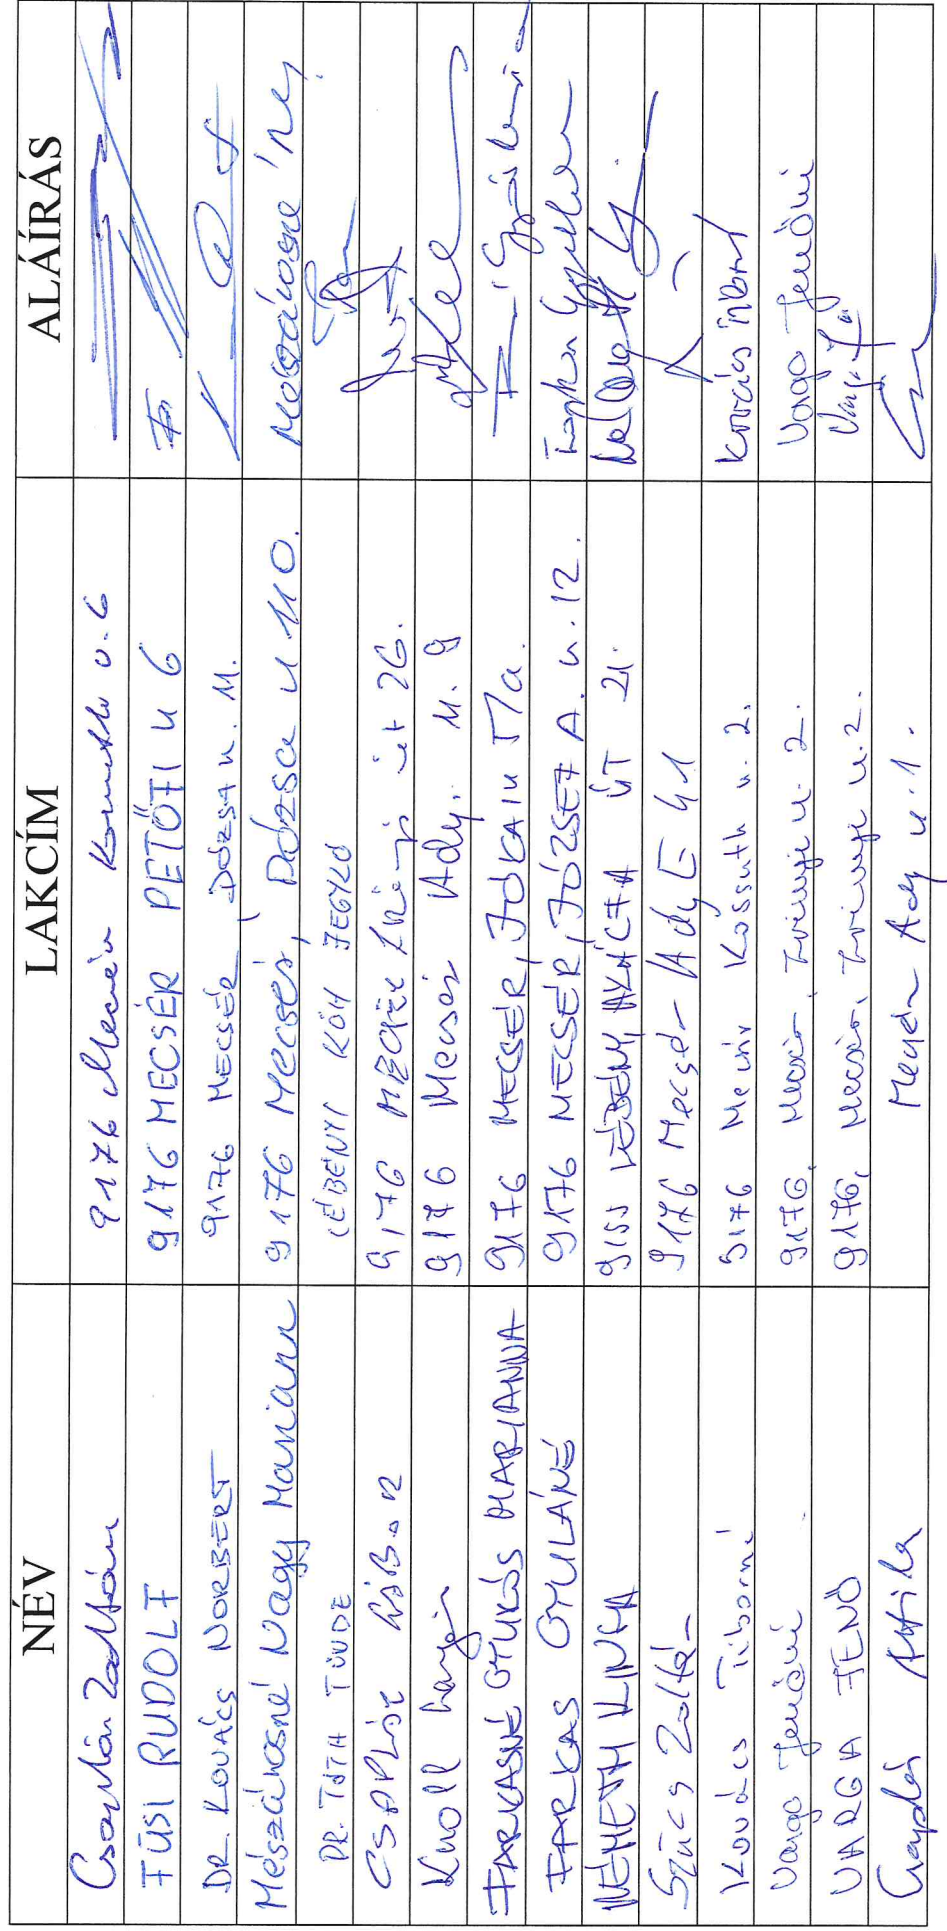 NÉV LAKCÍM ALÁÍRÁS
Zoltán 9176 Mecsér Kossuth u. 6
FÜSI RUDOLF 9176 MECSÉR PETŐFI U 6
DR. KOVÁCS NORBERT 9176 MECSÉR DÓZSA U. 11.
Mészárosné Nagy Mariann 9176 Mecsér, Dózsa u 110. Mészárosné
DR. TÓTH TÜNDE LÉBÉNYI KÖH JEGYZŐ
CSAPLÁR GÁBOR 9176 MECSÉR Zrínyi út 26.
Knoll 9176 Mecsér Ady. u. 9
FARKASNÉ GYURÓS MARIANNA 9176 MECSÉR, JÓKAI U 5/a.
FARKAS GYULÁNÉ 9176 MECSÉR, JÓZSEF A. u. 12. Farkas Gyuláné
NÉMETH KINGA 9155 LÉBÉNY, AKÁCFA ÚT 21.
Szűcs Zoltán 9176 Mecsér Ady E u 1
Kovács Tiborné 9176 Mecsér Kossuth u. 2. Kovács Tiborné
Varga Jenőné 9176, Mecsér, Zrínyi u. 2. Varga Jenőné
VARGA JENŐ 9176, Mecsér, Zrínyi u. 2. Varga
Attila Mecsér Ady u. 1.